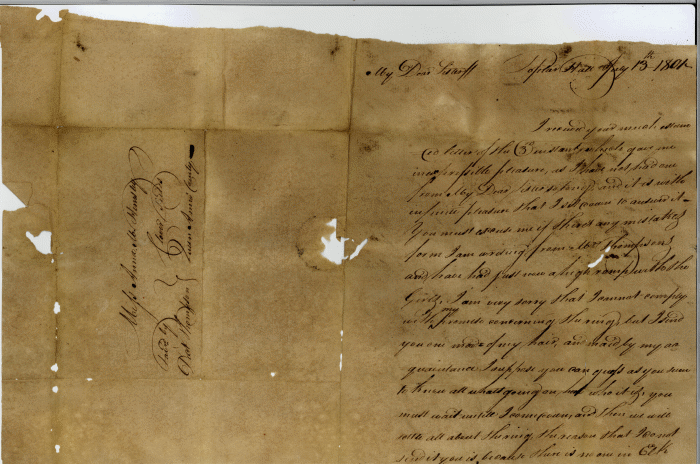 My Dear Poplar Hill July 13th 1801
I receiv'd your much esteem
ed letter of the instant, which gave me
inexpressible pleasure, as I have not had one
from My Dear so long, and it is with
infinite pleasure that I set down to answer it
You must excuse me if there's any mistakes
for in I am writing from Mrs Thompson's
and have had just now a high romp with the
Girls, I am very sorry that I cannot comply
with my promise concerning the ring, but I send
you one made of my hair, and made by my ac
quaintance I suppose you can guess as you seem
to know all what's going on, but who it is you
must wait untill I come down, and then we will
settle all about the ring the reason that I do not
send it you is, because there is no one in Elk
Miss Anna M
Queen Anns County
Fav'd by
Doct Thompson